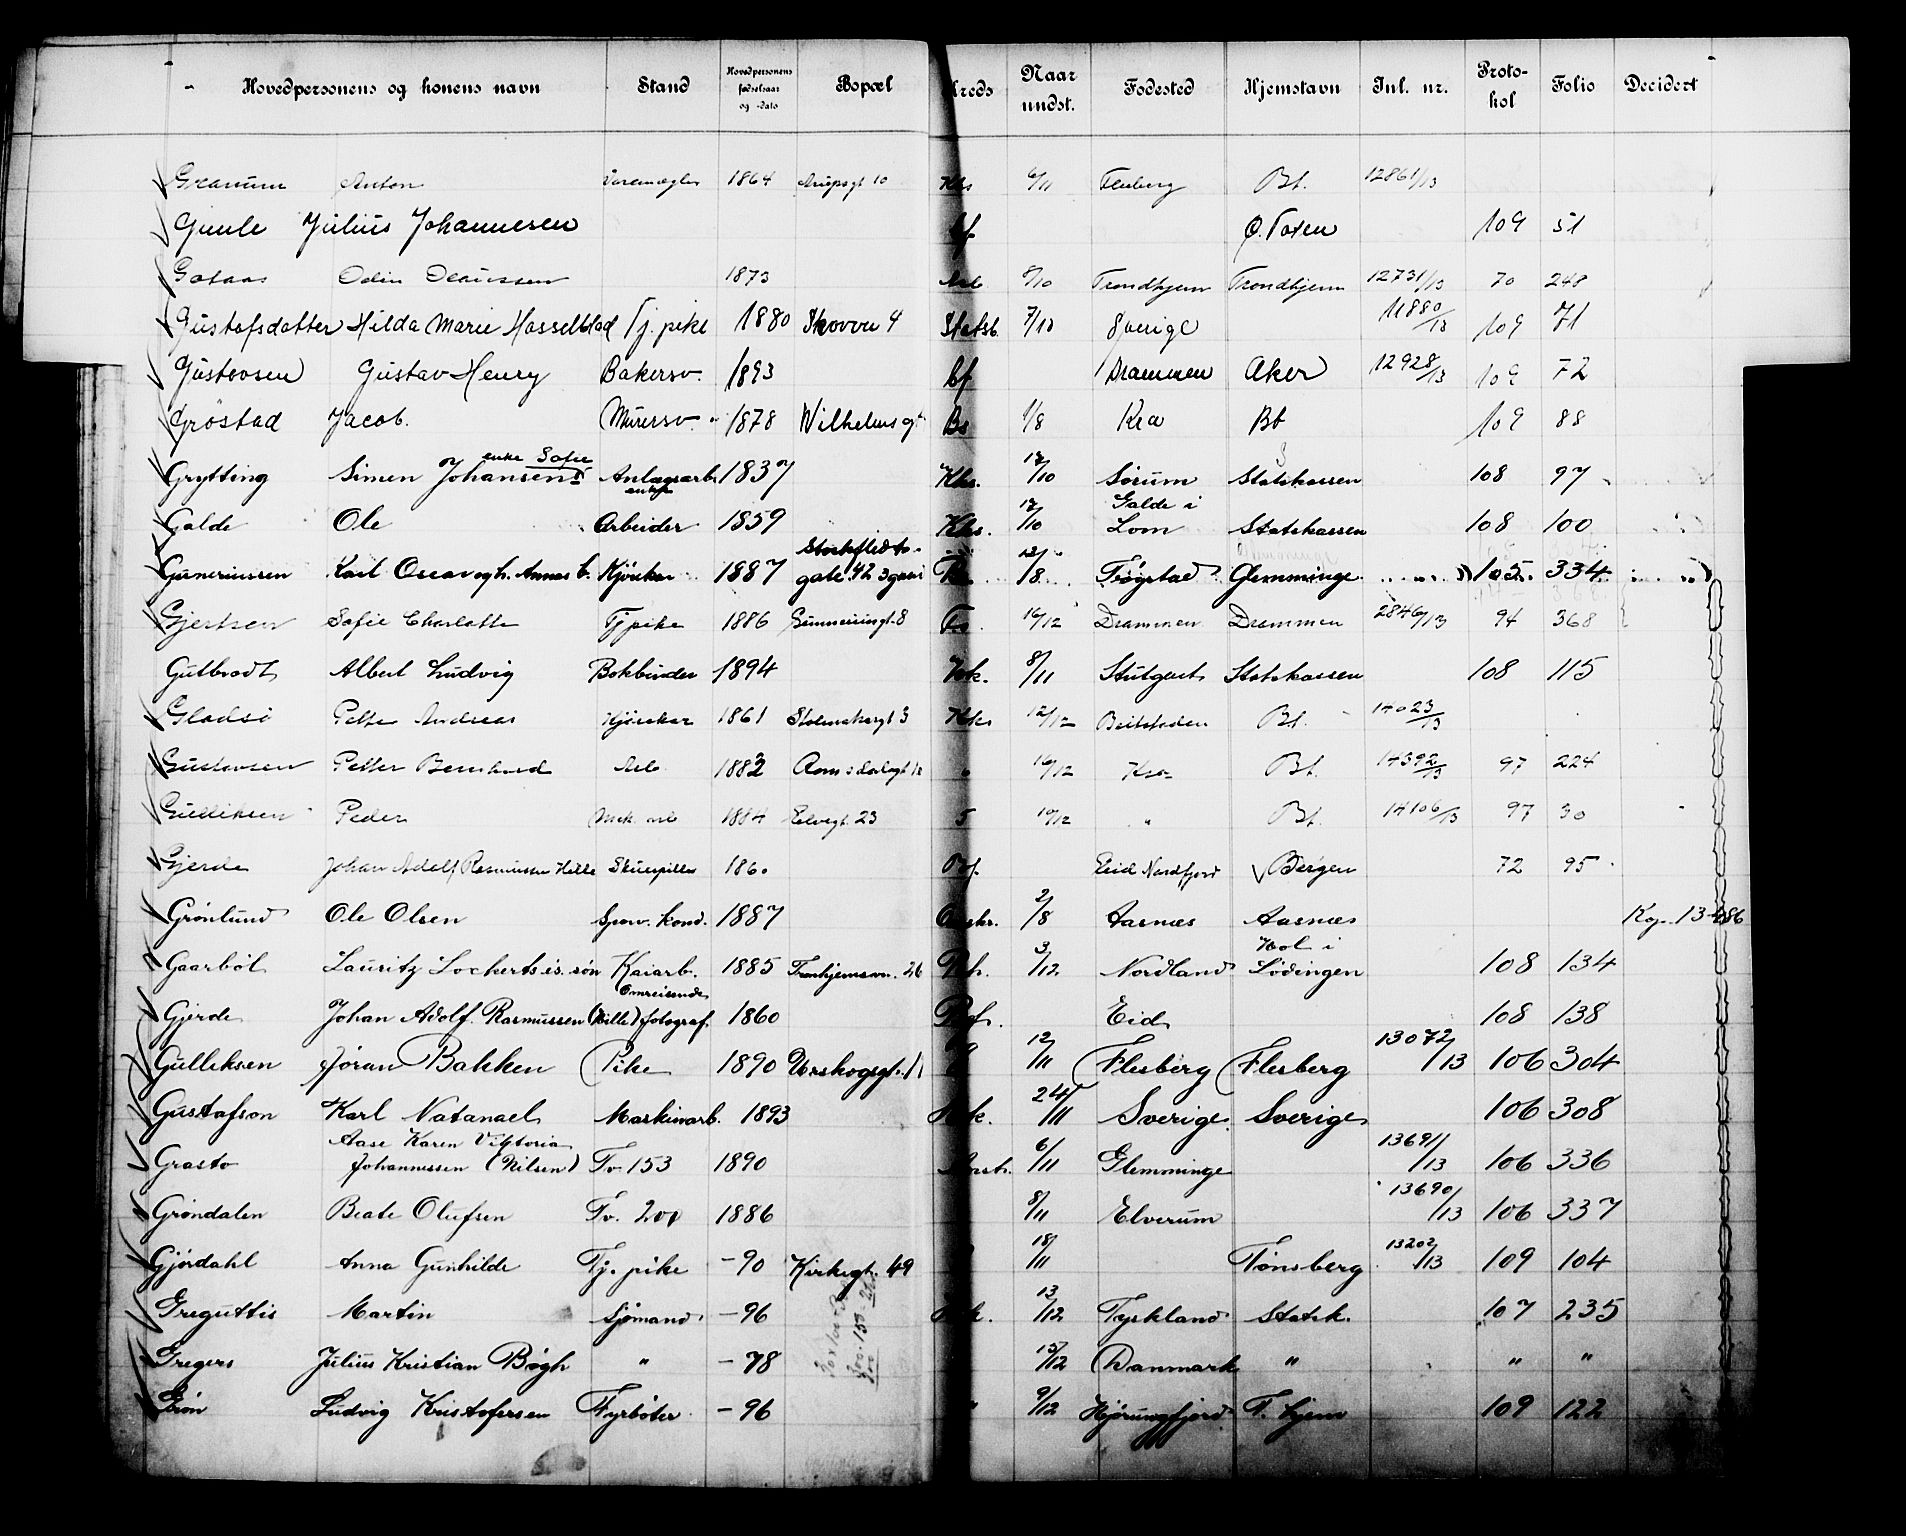 Hovedpersonens og konens navn Stand Hovedpersonens fødselsaar og -dato Bopæl Kreds Naar undst. Fødested Hjemstavn Inl. nr. Proto-kol Folio Decidert
Granum Anton 1864 Arupsgt 10 Kks 6/11 Flesberg Bt. 12861/13
Gimle Julius Johannesen Ø. Toten 109 51
Gataas Odin Olaussen 1873 Arb 8/10 Trondhjem Trondhjem 12731/13 70 248
Gustafsdatter Hilda Marie Hasselblad Tj. pike 1880 Skovvn 4 Statsb. 7/10 Sverige 11880/13 109 71
Gustavsen Gustav Henry Bakersv. 1893 Drammen Aker 12928/13 109 72
Grøstad Jacob. Murersv. 1878 Wilhelmsgt Bs 1/8 Kra Bt 109 88
enke Sofie
Grytting Simen Johansen Anlægsarb. enke 1837 Kks. 17/10 Sørum Statskassen 108 97
Galde Ole Arbeider 1859 Kks. 17/10 Galde i Lom Statskassen 108 100
Guneriussen Karl Oscar og h. Annas b. Kjørekar 1887 Stockfledts-gate 42 3 gaar 12/8 Trøgstad Glemminge 105 334
Gjertsen Sofie Charlotte Tjpike 1886 Sunnivingt. 8 16/12 Drammen Drammen 2846/13 94 368
Gutbrodt Albert Ludvig Bokbinder 1894 8/11 Stutgart Statskassen 108 115
Gladsø Petter Andreas Kjørekar 1861 Stolmakergt 3 Kks 12/12 Beitstaden Bt. 14023/13
Gustavsen Petter Bernhard Arb. 1882 Romsdalsgt 12 16/12 Kra Bt. 14392/13 97 224
Gulliksen Peder Mek. arb 1884 Eilvegt. 23 5 10/12 " Bt. 14106/13 97 30
Gjerde Johan Adolf Rasmussen Hille Skuespiller 1860 Eid Nordfjord Bergen 72 95
Grønlund Ole Olsen Sporv. kond. 1887 2/8 Aasnes Aasnes
Gaarbøl Lauritz Lockertsis. søn Kaiarb. 1885 Tronhjemsvn. 26 3/12 Nordland Hol i Lødingen 108 134
Gjerde Johan Adolf Rasmussen (Hille) Omreisende fotograf. 1860 Eid 108 138
Gulliksen Jøran Bakken Pike 1890 Urskogsgt. 11 12/11 Flesberg Flesberg 13072/13 106 304
Gustafson Karl Natanael Maskinarb. 1893 24/11 Sverige Sverige 106 308
Grasto Aase Karen Viktoria Johannessen (Nilsen) Tv 153 1890 6/11 Glemminge 13691/13 106 336
Grøndalen Beate Olufsen Tv. 200 1886 8/11 Elverum 13690/13 106 337
Gjørdahl Anna Gunhilde Tj. pike - 90 Kirkegt. 49 18/11 Tønsberg 13202/13 109 104
Greguttis Martin Sjømand - 96 13/12 Tyskland Statsk. 107 235
Gregers Julius Kristian Bøgh " - 78 15/12 Danmark " " "
Grøn Ludvig Kristofersen Fyrbøter - 96 " 9/12 Hjørungfjord T. hjem 109 122